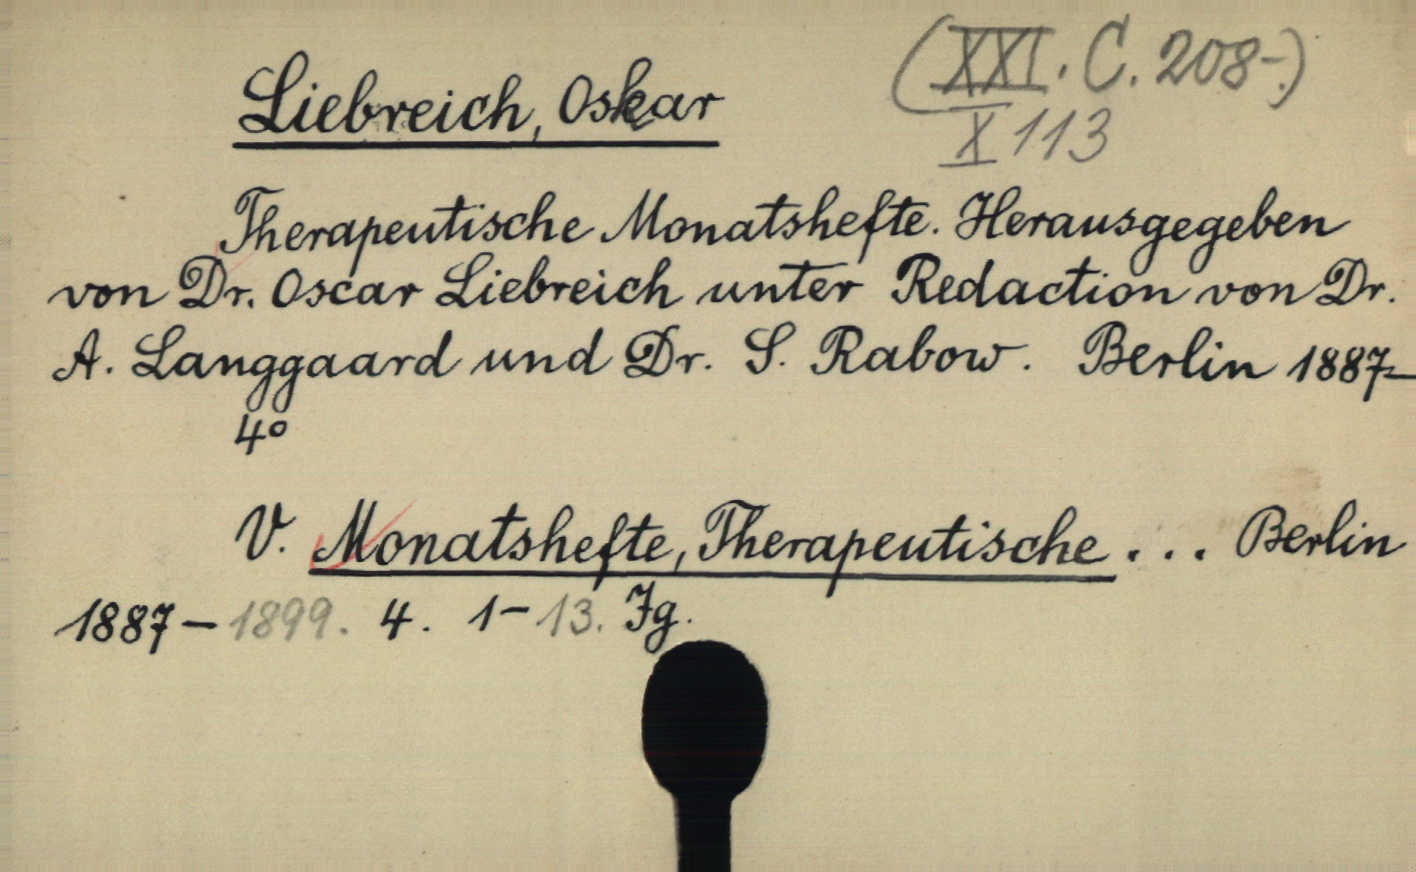 (XXI. C. 208-.)
Liebreich, Oskar
X 113
Therapeutische Monatshefte. Herausgegeben
von Dr. Oscar Liebreich unter Redaction von Dr.
A. Langgaard und Dr. S. Rabow. Berlin 1887-
4º
V. Monatshefte, Therapeutische ... Berlin
1887-1899. 4. 1-13. Jg.